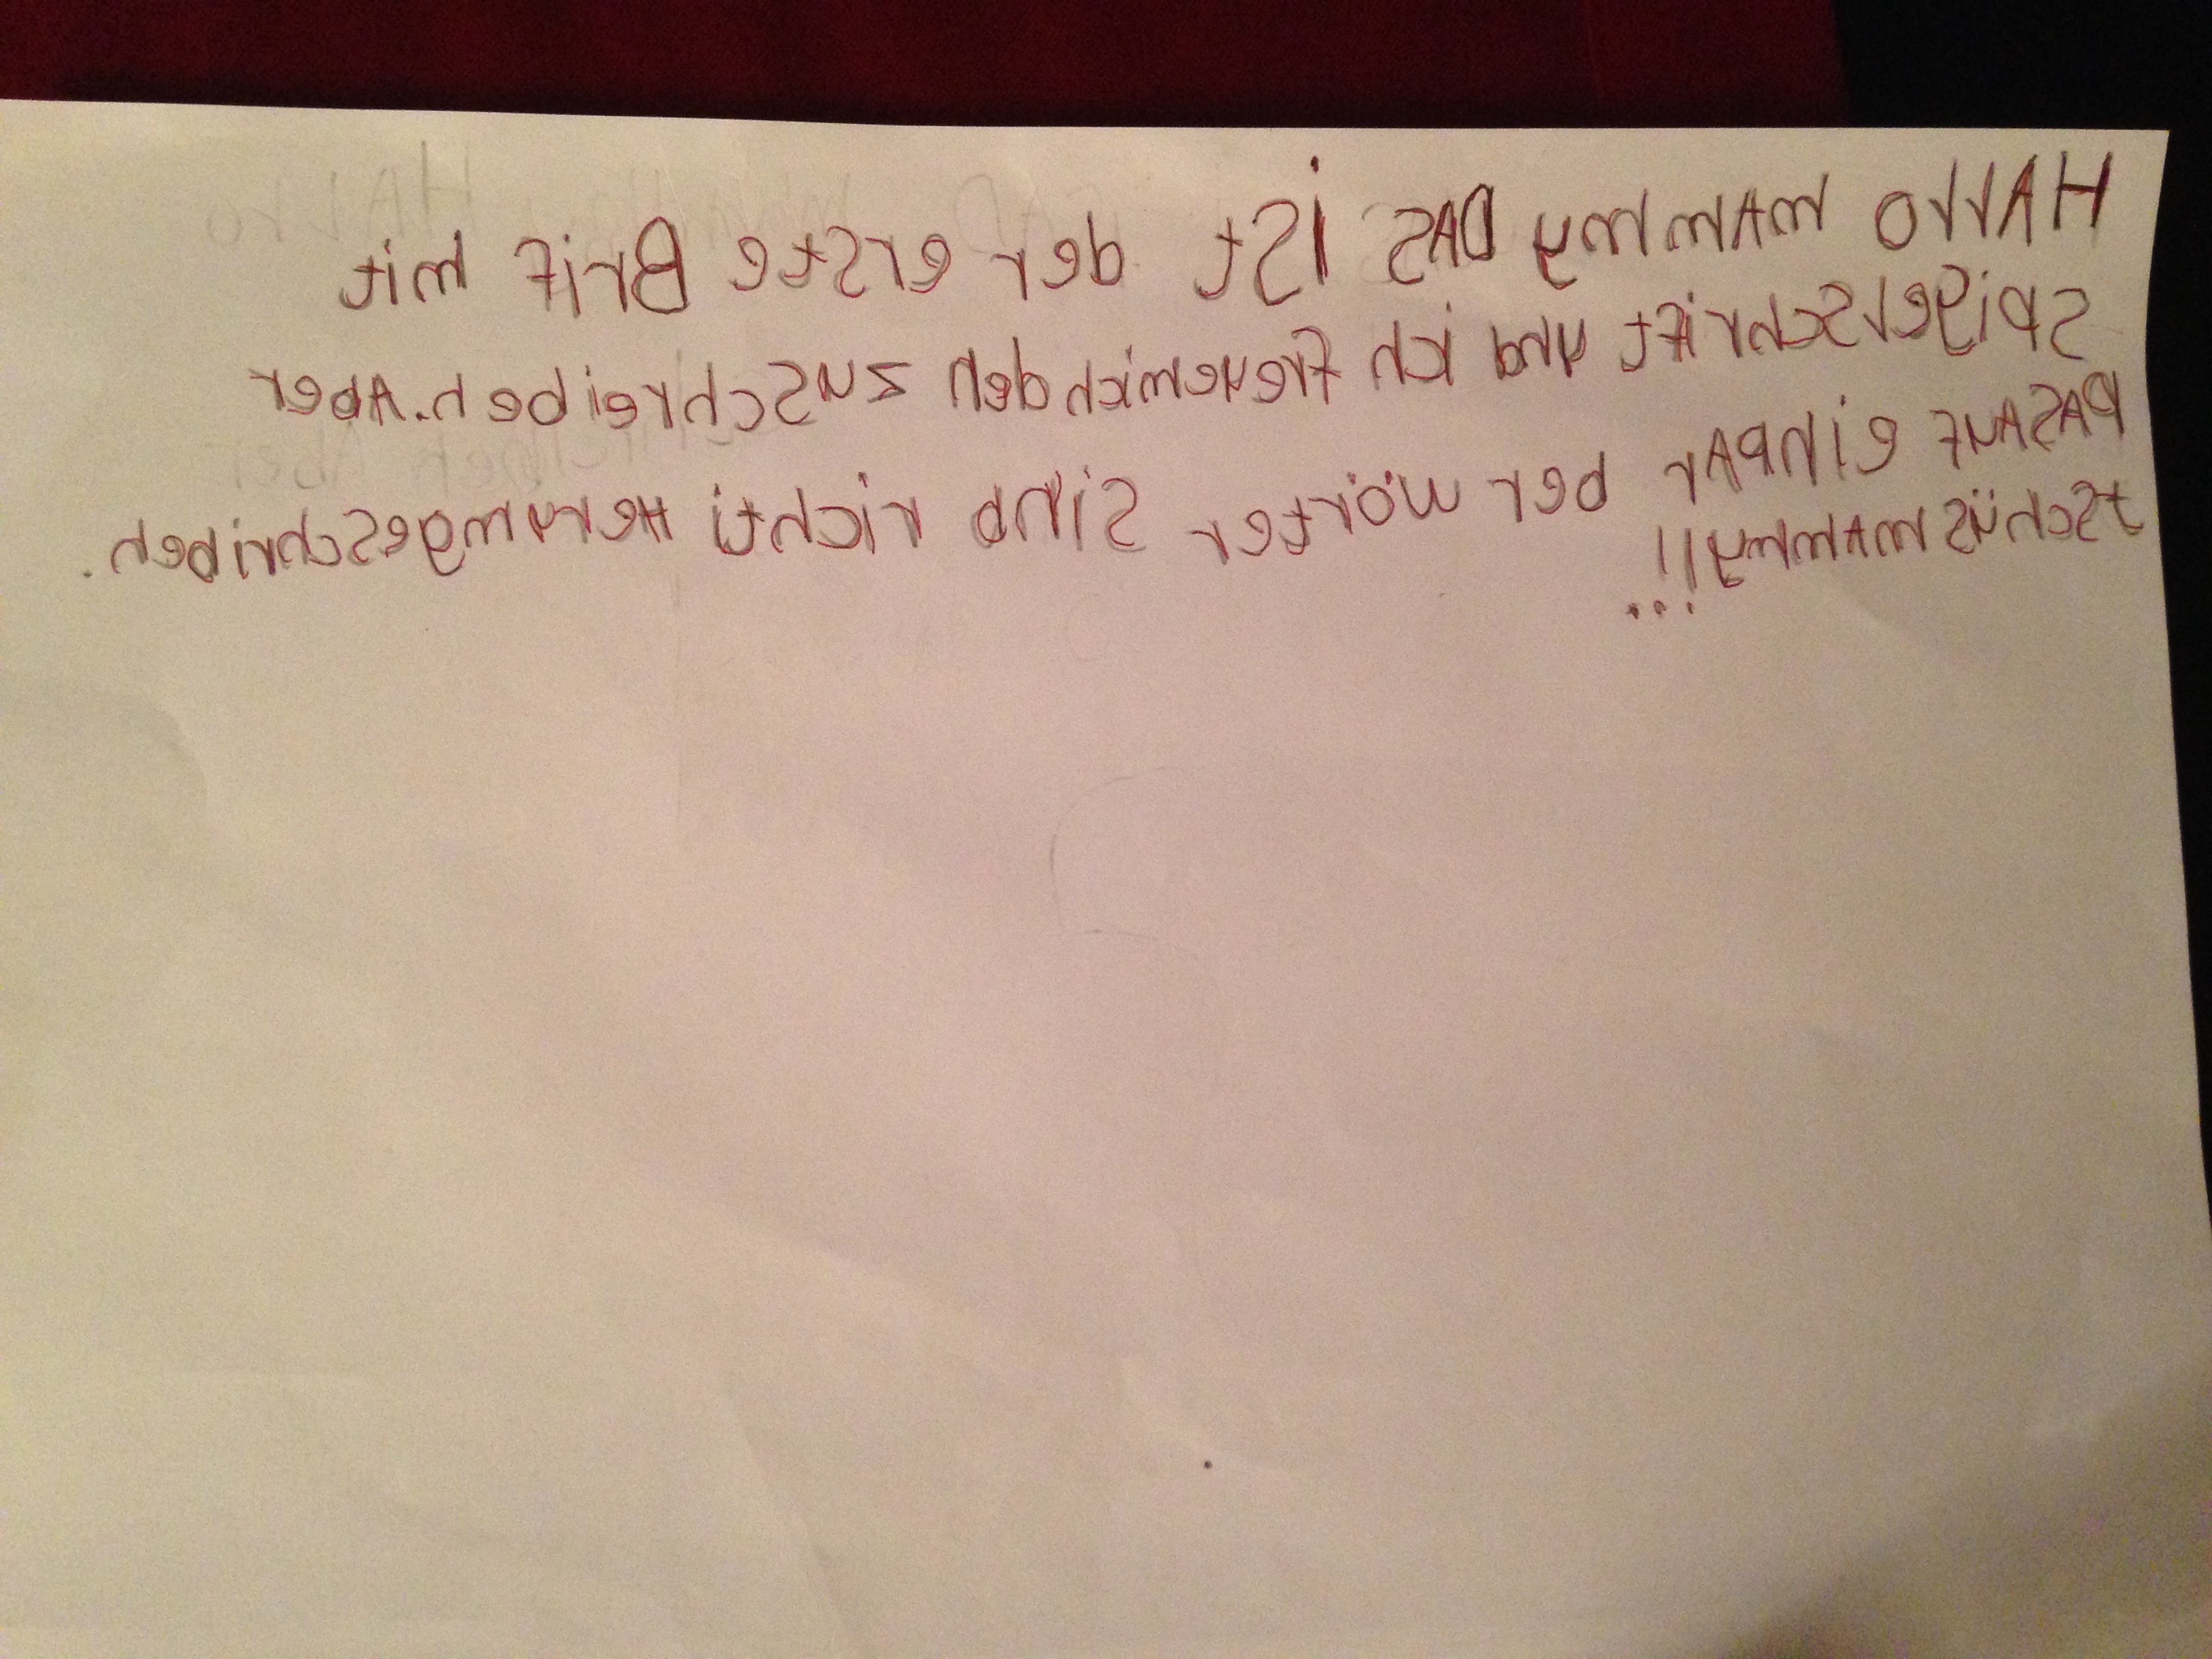 HALLO mAmmy DAS iSt der erste Brif mit
Spigelschrift und ich freuemich den zuschreiben. Aber
DASAUF einpAr der wörter Sind richti Herumgeschriben.
tschüs mAmmy!!!